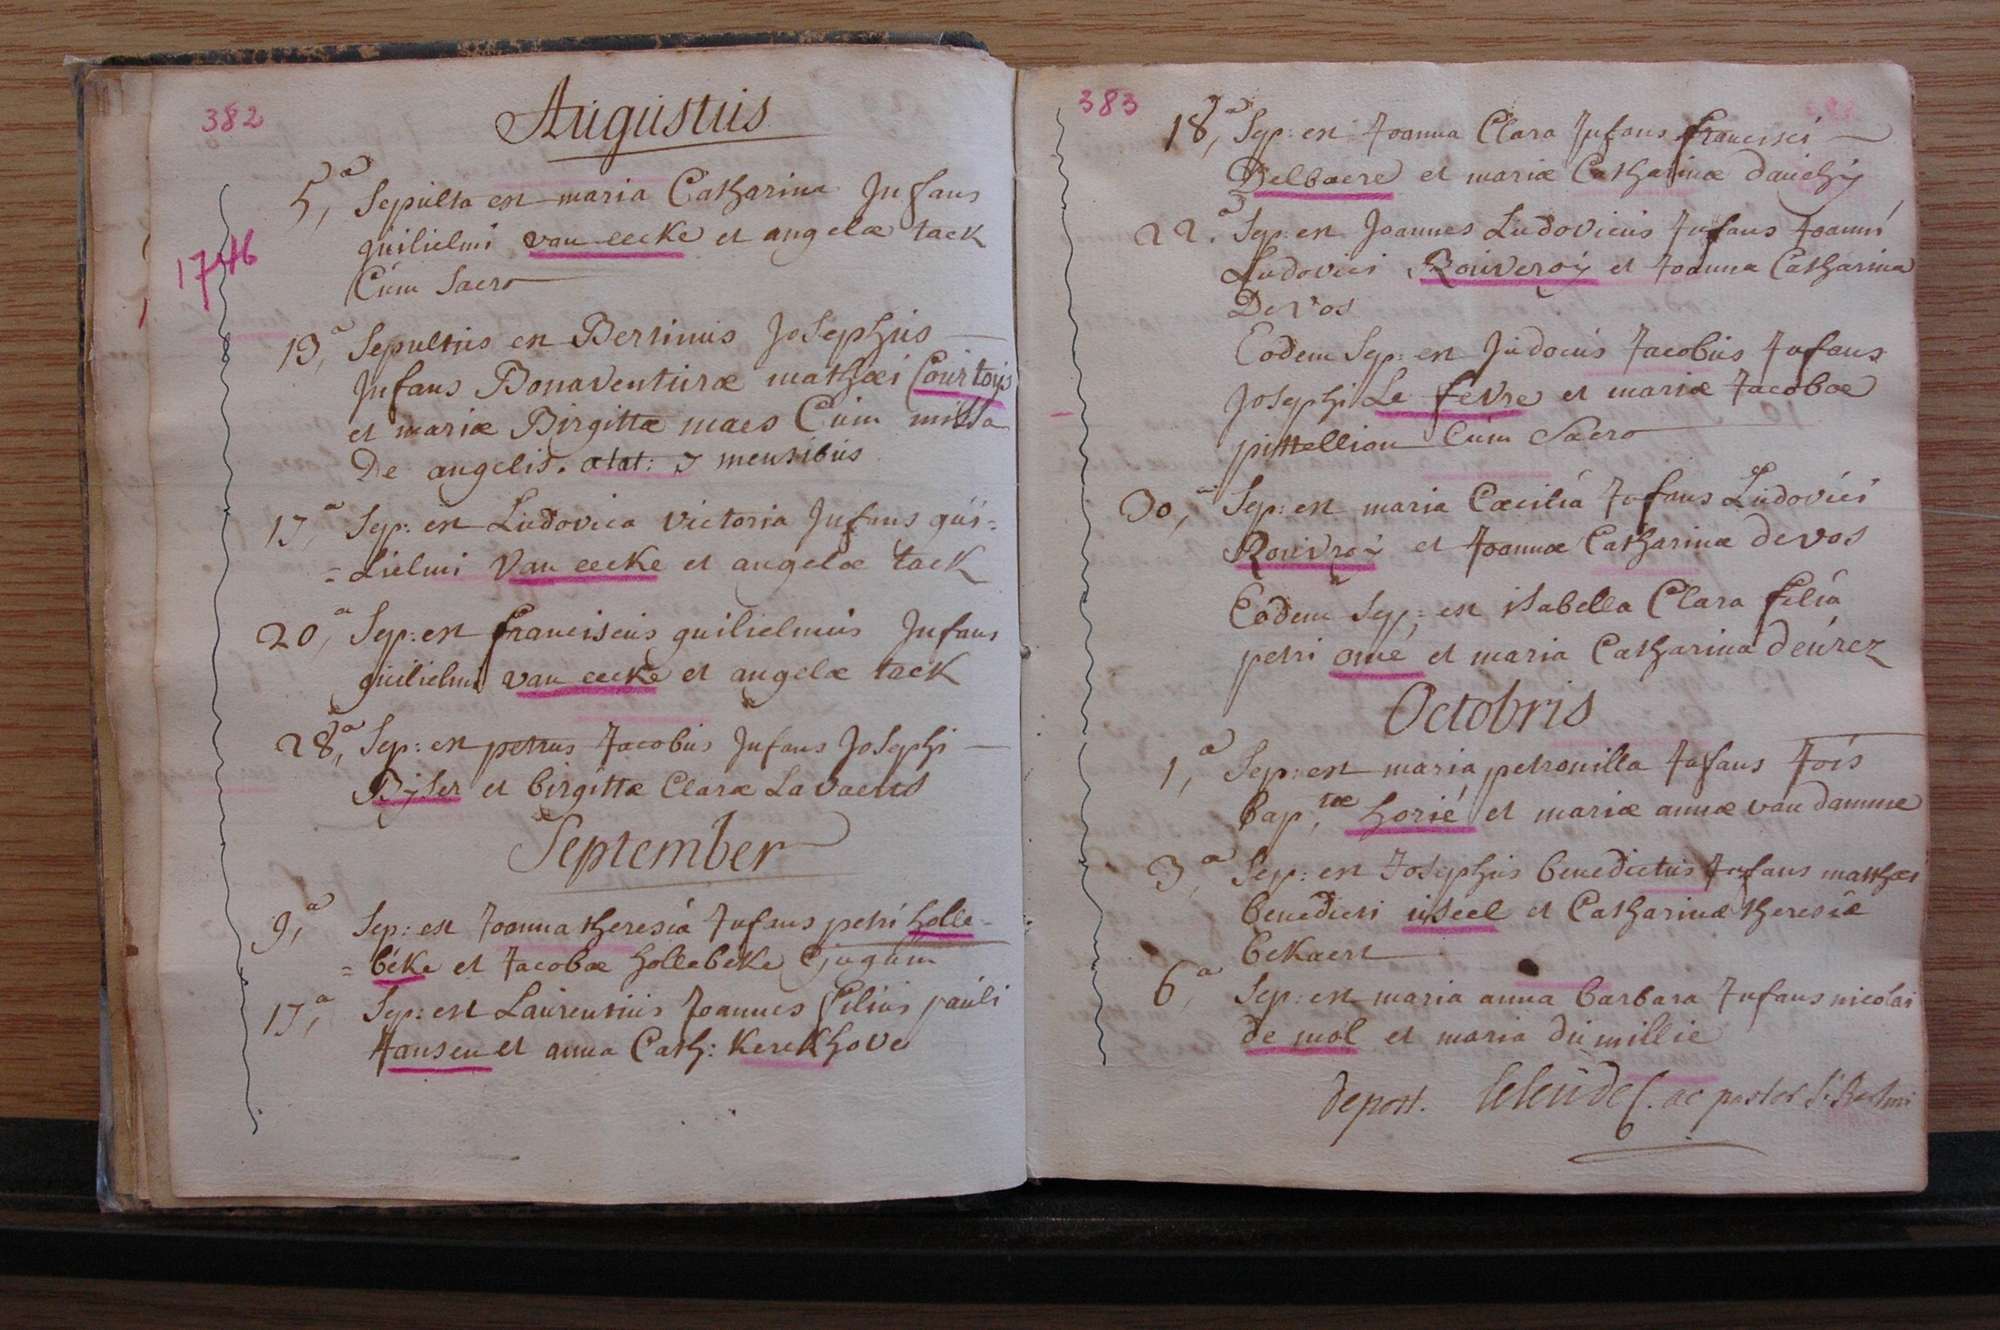 382
Augustus
5,a Sepulta est maria Catharina Infans
guilielmi van eecke et angelæ tack
Cum Sacro
1746
13,a Sepultus est Bertinus Josephus
Infans Bonaventuræ mathæi Courtoijs
et mariæ Birgittæ maes Cum missa
De angelis. ætat: 7 mensibus
17,a Sep: est Ludovica victoria Infans gui=
=lielmi Van eecke et angelæ tack
20,a Sep: est franciscus guilielmus Infans
guilielmi van eecke et angelæ tack
28,a Sep: est petrus Jacobus Infans Josephi
Bijser et birgittæ Claræ Lavaens
September
9,a Sep: est Joanna theresia Infans petri holle=
=beke et Jacobæ hollebeke Cjugum
17,a Sep: est Laurentius Joannes filius pauli
Hansen et anna Cath: Kerckhove
383
18,a Sep: est Joanna Clara Infans francisci
Delbaere et mariæ Catharinæ dauchij
22,a Sep: est Joannes Ludovicus Infans Joanni
Ludovici Rouveroij et Joanna Catharina
De Vos
Eodem Sep: est Judocus Jacobus Infans
Josephi Le fevre et mariæ Jacobæ
pittellion Cum Sacro
30,a Sep: est maria Cæcilia Infans Ludovici
Rouvroi et Joannæ Catharinæ de vos
Eodem Sep: est isabella Clara filia
petri omé et maria Catharina deurez
Octobris
1,a Sep: est maria petronilla Infans Jois
bap,tæ horié et mariæ annæ van damme
3,a Sep: est Josephus benedictus Infans matthæi
benedicti useel et Catharinæ theresiæ
bekaert
6,a Sep: est maria anna barbara Infans nicolai
de mol et maria du millie
deport. ac pastor